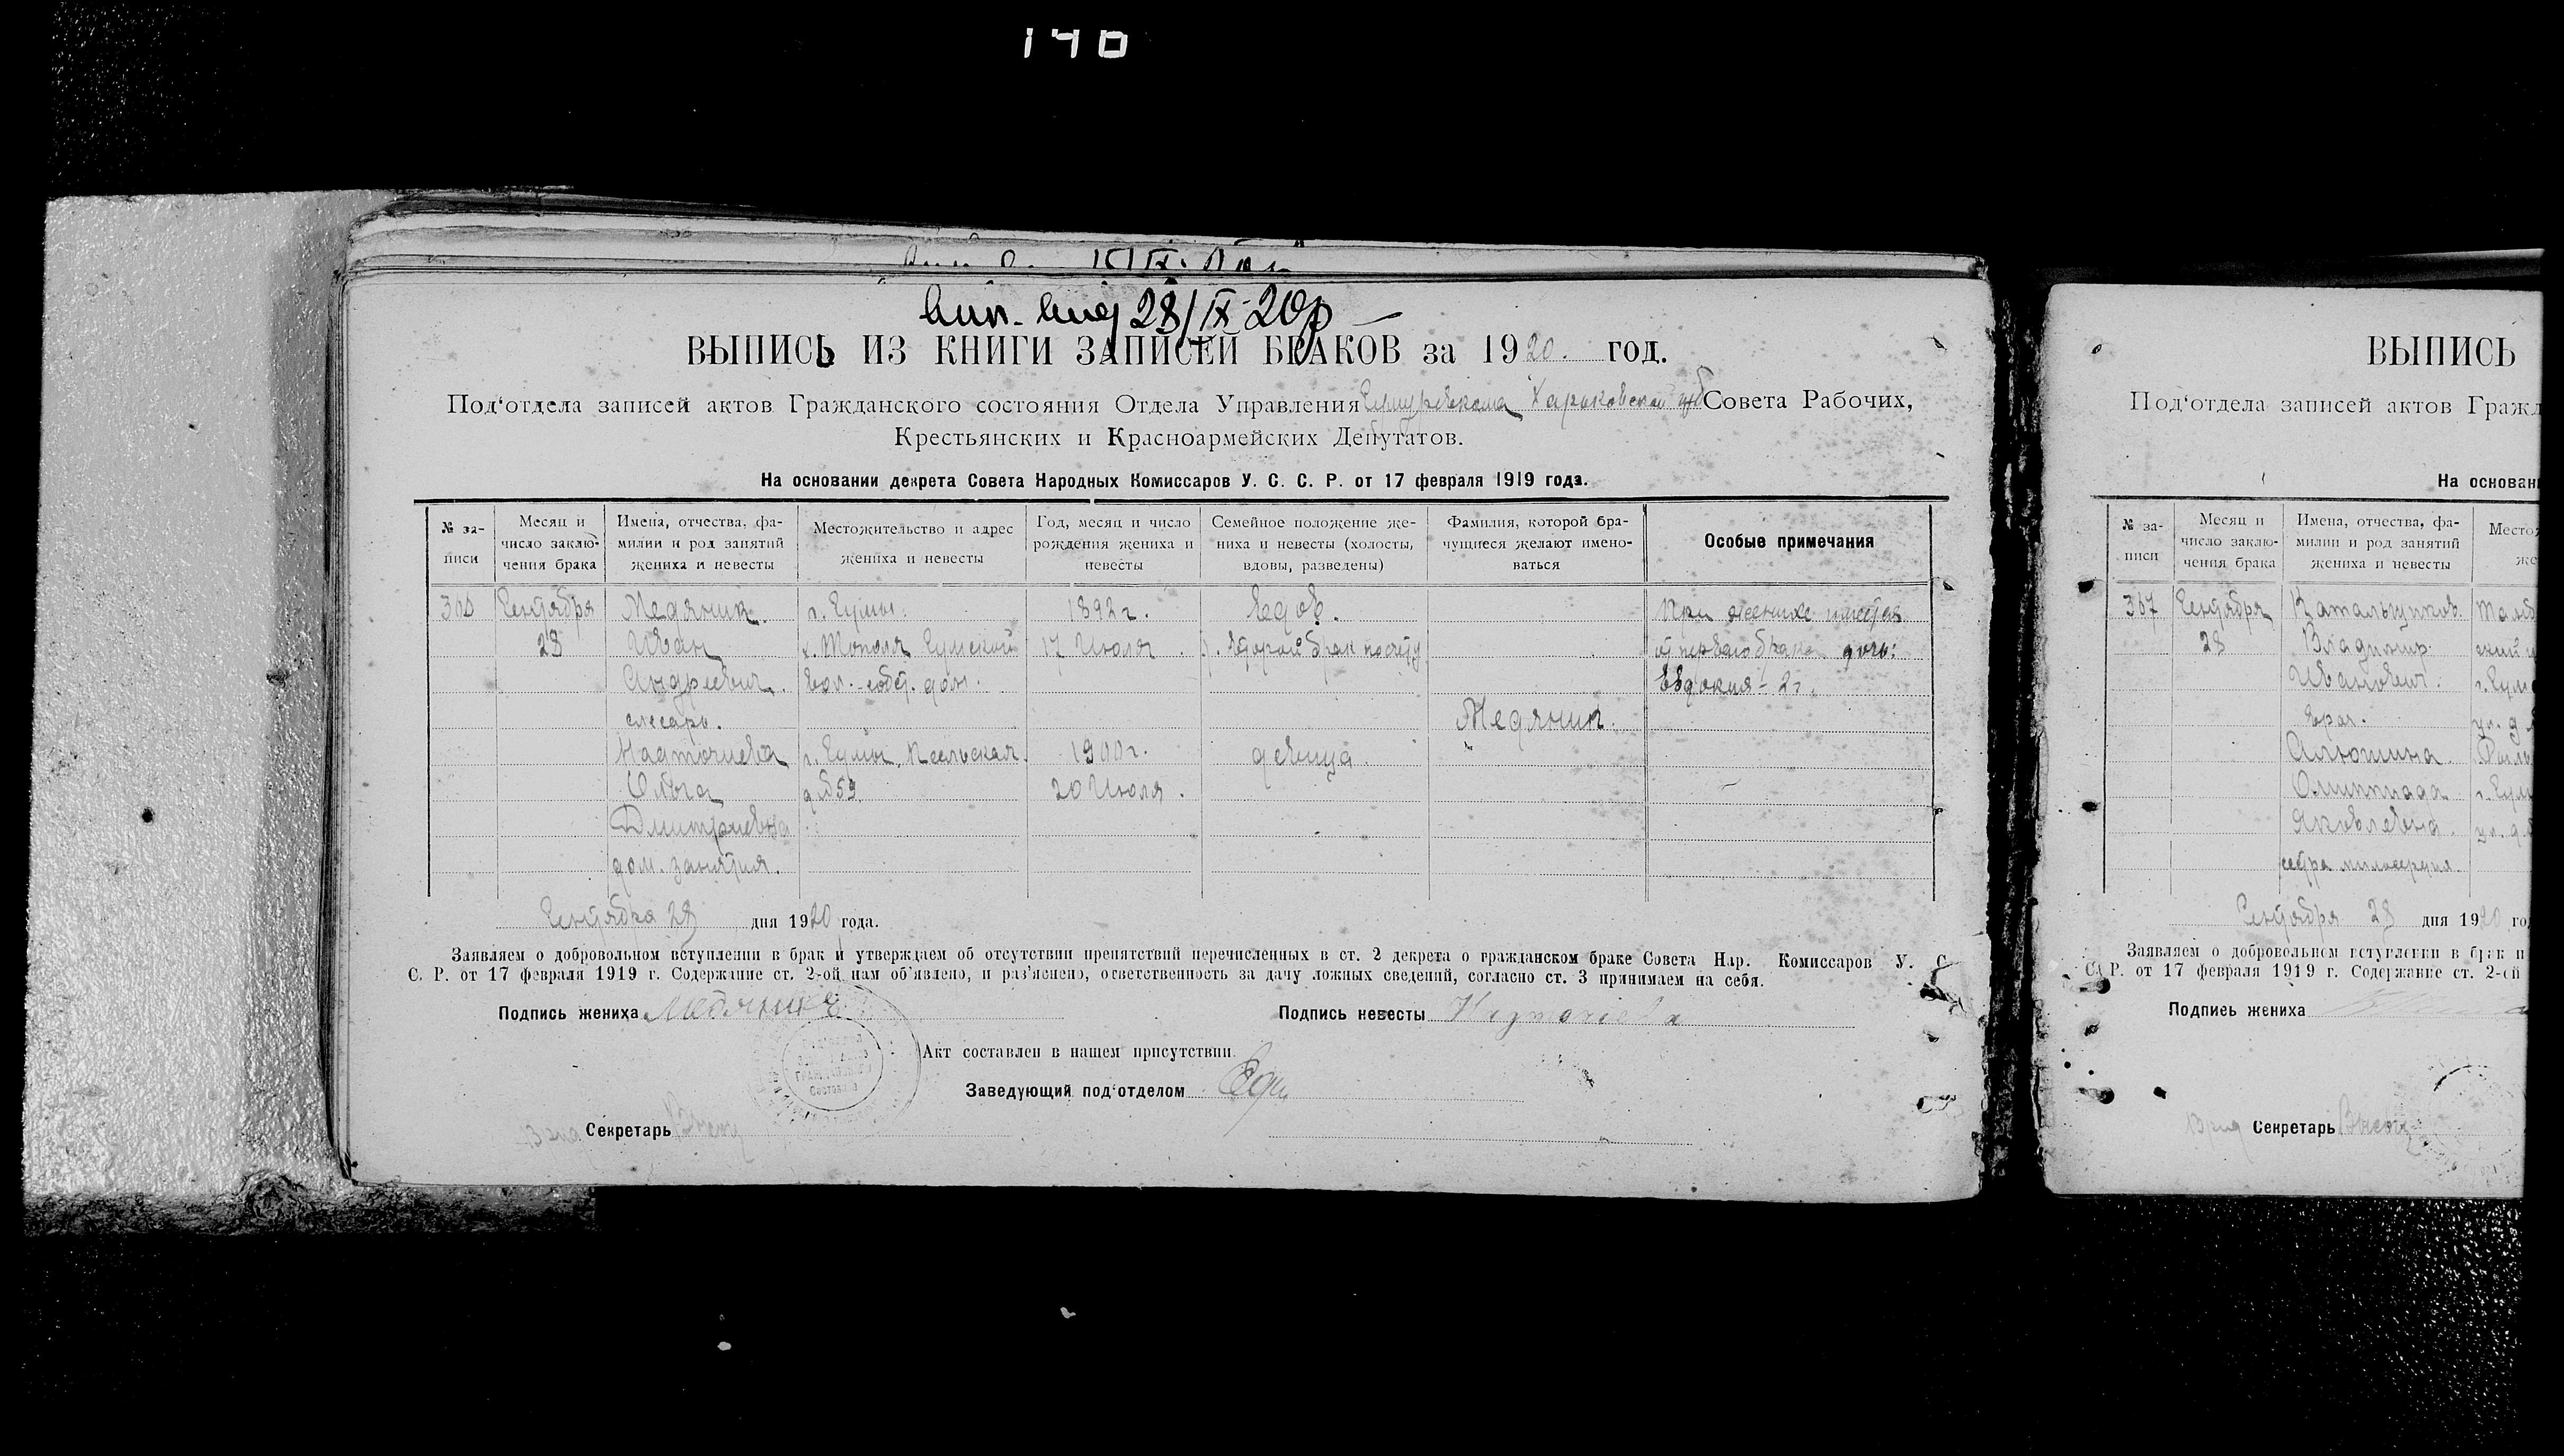 140
28/IX-20р
ВЫПИСЬ ИЗ КНИГИ ЗАПИСЕЙ БРАКОВ за 1920. год.
Под'отдела записей актов Гражданского состояния Отдела Управления Харьковской губ Совета Рабочих,
Крестьянских и Красноармейских Депутатов.
На основании декрета Совета Народных Комиссаров У. С. С. Р. от 17 февраля 1919 года.
№ за-
писи
Месяц и
число заклю-
чения брака
Имена, отчества, фа-
милии и род занятий
жениха и невесты
Местожительство и адрес
жениха и невесты
Год, месяц и число
рождения жениха и
невесты
Семейное положение же-
ниха и невесты (холосты,
вдовы, разведены)
Фамилия, которой бра-
чущиеся желают имено-
ваться
Особые примечания
Сентября
28
Медяник.
Иван
Андреевич.
слесарь.
г. Сумы.
х. Тополя Сумской
вол. собст. дом.
1892 г.
17 Июля.
Вдов.
Второй брак по счету
Медяник.
При женихе имеется
от первого брака дочь:
Евдокия - 2 г.
Надточиева
Ольга
Дмитриевна
дом. занятия.
г. Сумы, Псельская
д. № 59
1900 г.
20 Июля.
девица.
Сентября 28 дня 1920 года.
Заявляем о добровольном вступлении в брак и утверждаем об отсутствии препятствий перечисленных в ст. 2 декрета о гражданском браке Совета Нар. Комиссаров У. С.
С. Р. от 17 февраля 1919 г. Содержание ст. 2-ой нам об'явлено, и раз'яснено, ответственность за дачу ложных сведений, согласно ст. 3 принимаем на себя.
Подпись жениха Медяник
Подпись невесты Надточиева
Акт составлен в нашем присутствии.
Заведующий под'отделом
Секретарь
ВЫПИСЬ
Под'отдела записей актов Гражд
На основан
№ за-
писи
Месяц и
число заклю-
чения брака
Имена, отчества, фа-
милии и род занятий
жениха и невесты
Место
же
307
Сентября
28
Катальщиков.
Владимир
Иванович.
врач.
Алюшина
Олимпиада
Яковлевна.
сестра милосердия.
Сентября 28 дня 1920 го
Заявляем о добровольном вступлении в брак и
С. Р. от 17 февраля 1919 г. Содержание ст. 2-ой
Подпись жениха
Врид Секретарь